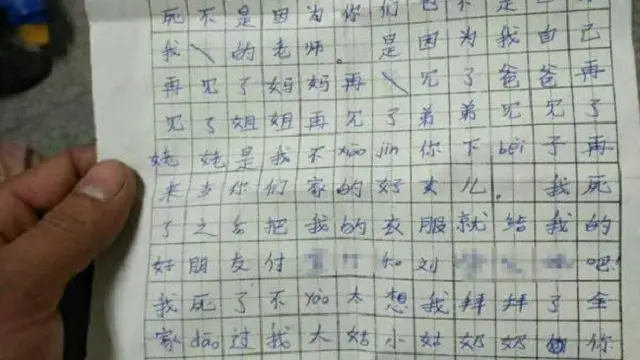 死不是因为你们也不是
我\的老师。是因为我自己
再见了妈妈再\见了爸爸再
见了姐姐再见了弟弟见见了
姥姥是我不xiào jìn你下bèi子再
来当你们家的好女儿。我死
了之后把我的衣服就给我的
好朋友付 和刘 吧!
我死了不yào太想我拜拜了全
家dāo过我大姑小姑奶奶 你